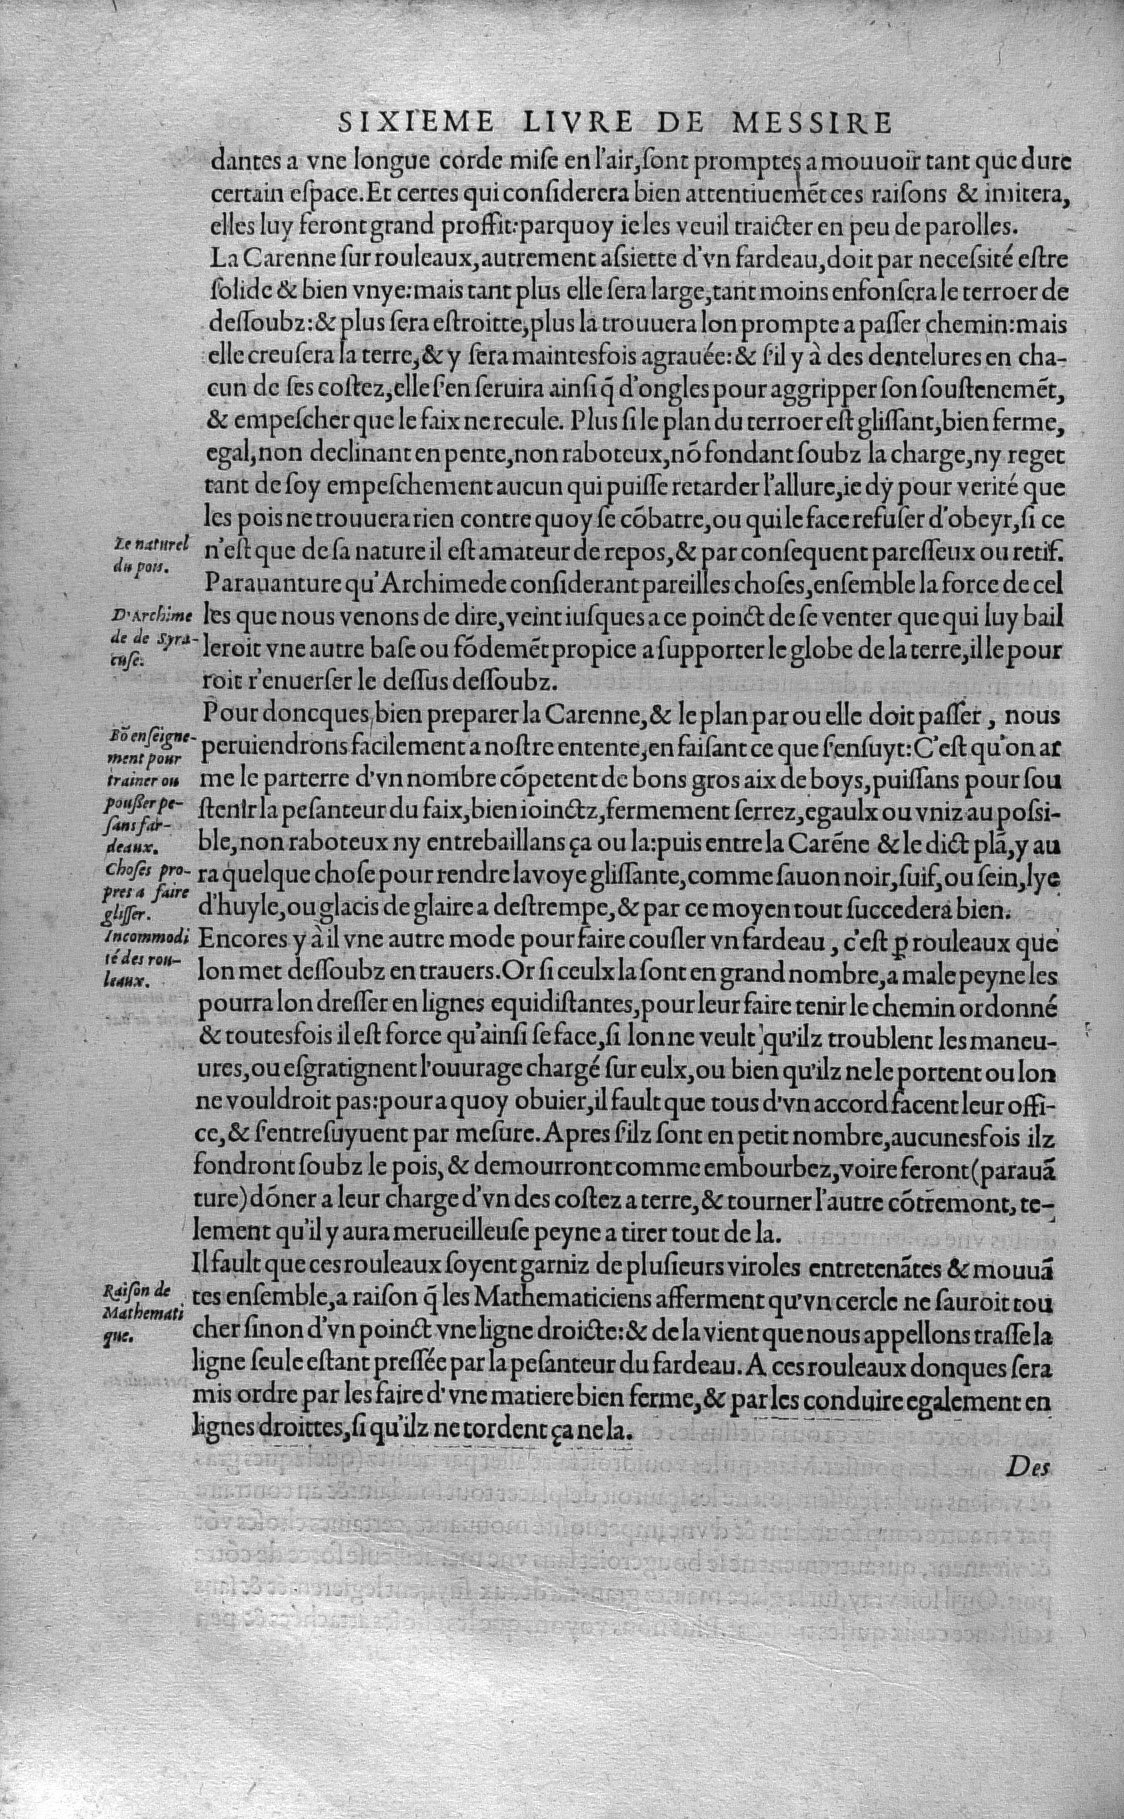 SIXIEME LIVRE DE MESSIRE
dantes a vne longue corde mise en l'air, sont promptes a mouuoir tant que dure
certain espace. Et certes qui considerera bien attentiuemẽt ces raisons & imitera,
elles luy feront grand proffit: parquoy ie les veuil traicter en peu de parolles.
La Carenne sur rouleaux, autrement assiette d'vn fardeau, doit par necessité estre
solide & bien vnye: mais tant plus elle sera large, tant moins enfonsera le terroer de
dessoubz: & plus sera estroitte, plus la trouuera lon prompte a passer chemin: mais
elle creusera la terre, & y sera maintesfois agrauée: & s'il y à des dentelures en cha-
cun de ses costez, elle s'en seruira ainsi q̃ d'ongles pour aggripper son soustenemẽt,
& empescher que le faix ne recule. Plus si le plan du terroer est glissant, bien ferme,
egal, non declinant en pente, non raboteux, nõ fondant soubz la charge, ny reget
tant de soy empeschement aucun qui puisse retarder l'allure, ie dy pour verité que
les pois ne trouuera rien contre quoy se cõbatre, ou qui le face refuser d'obeyr, si ce
Le naturel
du pois.
n'est que de sa nature il est amateur de repos, & par consequent paresseux ou retif.
Parauanture qu'Archimede considerant pareilles choses, ensemble la force de cel
D'Archime
de de Syra-
cuse.
les que nous venons de dire, veint iusques a ce poinct de se venter que qui luy bail
leroit vne autre base ou fõdemẽt propice a supporter le globe de la terre, il le pour
roit r'enuerser le dessus dessoubz.
Pour doncques bien preparer la Carenne, & le plan par ou elle doit passer, nous
Bõ enseigne-
ment pour
trainer ou
pousser pe-
sans far-
deaux.
peruiendrons facilement a nostre entente, en faisant ce que s'ensuyt: C'est qu'on ar
me le parterre d'vn nombre cõpetent de bons gros aix de boys, puissans pour sou
stenir la pesanteur du faix, bien ioinctz, fermement serrez, egaulx ou vniz au possi-
ble, non raboteux ny entrebaillans ça ou la: puis entre la Carẽne & le dict plã, y au
Choses pro-
pres a faire
glisser.
ra quelque chose pour rendre la voye glissante, comme sauon noir, suif, ou sein, lye
d'huyle, ou glacis de glaire a destrempe, & par ce moyen tout succedera bien.
Incommodi
té des rou-
leaux.
Encores y à il vne autre mode pour faire cousler vn fardeau, c'est ꝑ rouleaux que
lon met dessoubz en trauers. Or si ceulx la sont en grand nombre, a male peyne les
pourra lon dresser en lignes equidistantes, pour leur faire tenir le chemin ordonné
& toutesfois il est force qu'ainsi se face, si lon ne veult qu'ilz troublent les maneu-
ures, ou esgratignent l'ouurage chargé sur eulx, ou bien qu'ilz ne le portent ou lon
ne vouldroit pas: pour a quoy obuier, il fault que tous d'vn accord facent leur offi-
ce, & s'entresuyuent par mesure. Apres s'ilz sont en petit nombre, aucunesfois ilz
fondront soubz le pois, & demourront comme embourbez, voire feront (parauã
ture) dõner a leur charge d'vn des costez a terre, & tourner l'autre cõtremont, te-
lement qu'il y aura merueilleuse peyne a tirer tout de la.
Il fault que ces rouleaux soyent garniz de plusieurs viroles entretenãtes & mouuã
Raison de
Mathemati
que.
tes ensemble, a raison q̃ les Mathematiciens afferment qu'vn cercle ne sauroit tou
cher sinon d'vn poinct vne ligne droicte: & de la vient que nous appellons trasse la
ligne seule estant pressée par la pesanteur du fardeau. A ces rouleaux donques sera
mis ordre par les faire d'vne matiere bien ferme, & par les conduire egalement en
lignes droittes, si qu'ilz ne tordent ça ne la.
Des